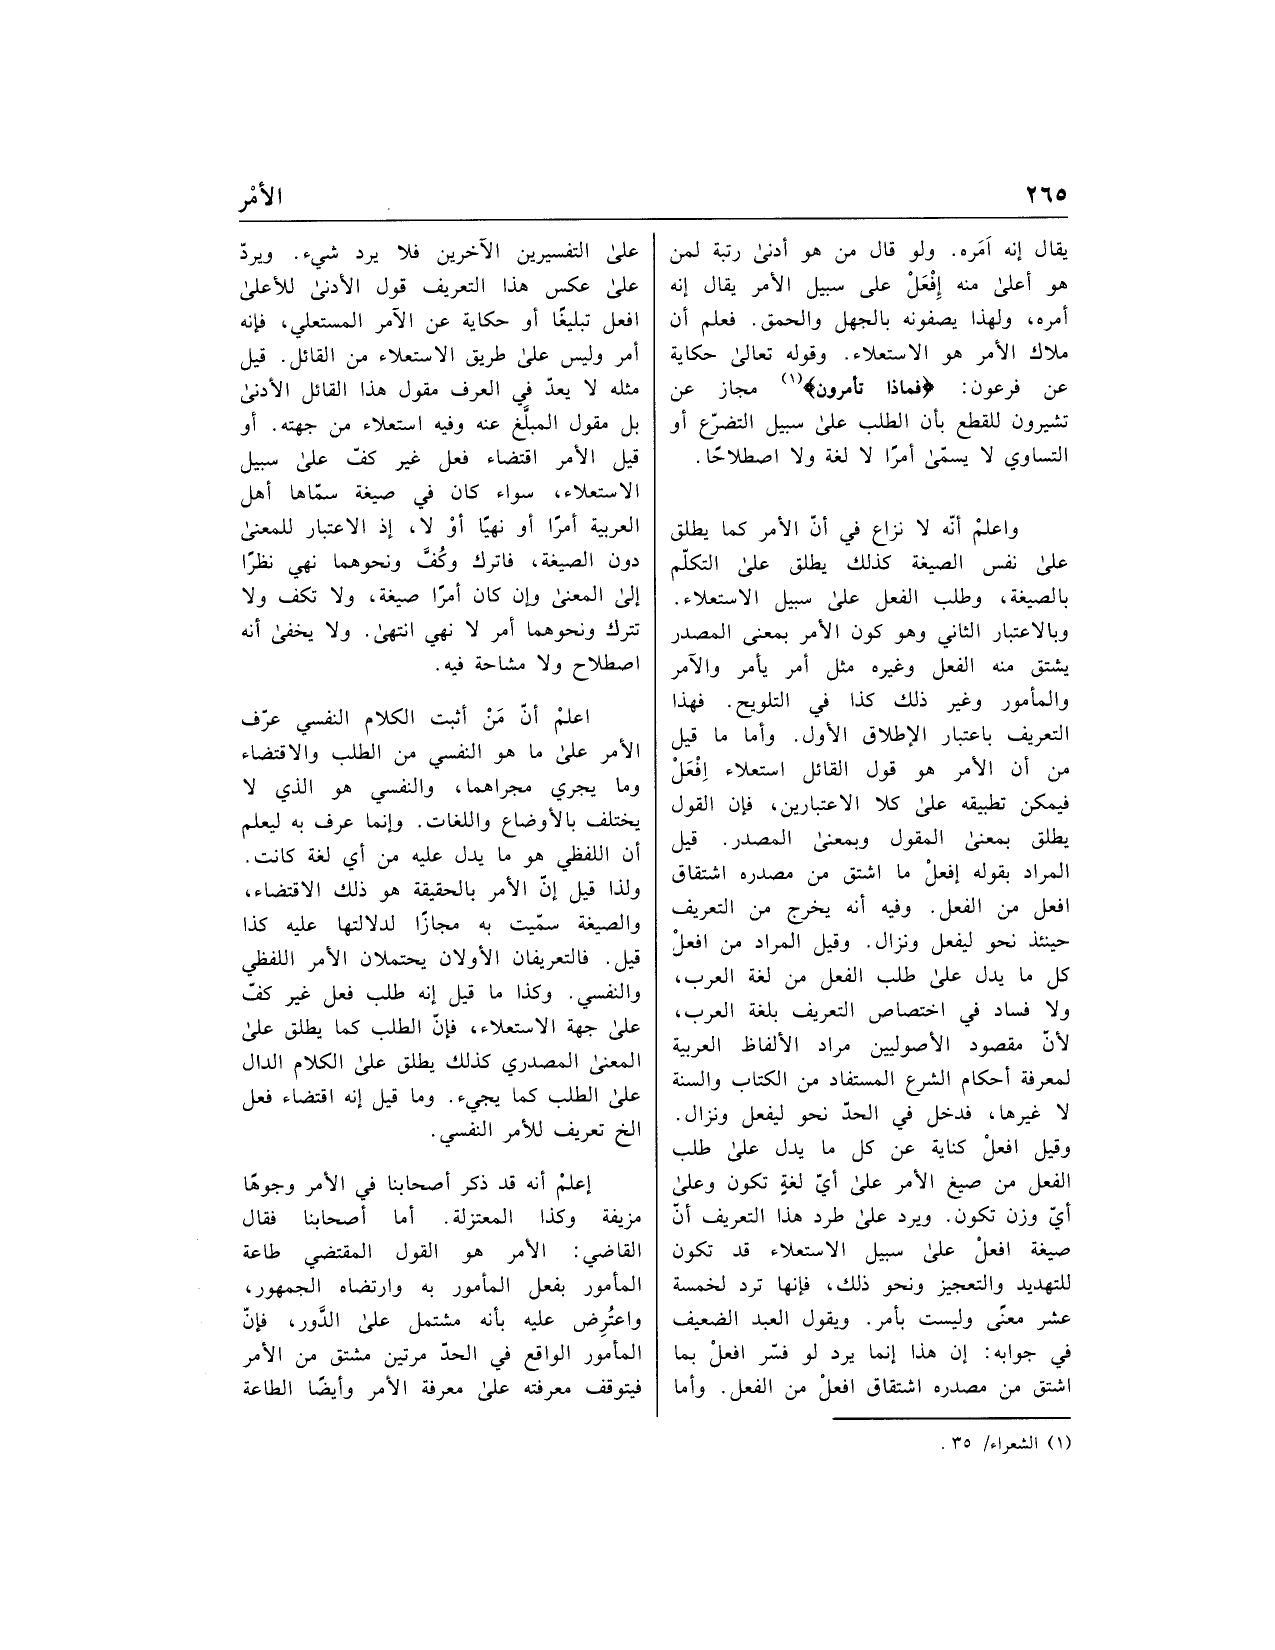 ٢٦٥
الأمْر
يقال إنه اَمَره. ولو قال من هو أدنىٰ رتبة لمن
هو أعلىٰ منه إفْعَلْ على سبيل الأمر يقال إنه
أمره، ولهذا يصفونه بالجهل والحمق. فعلم أن
ملاك الأمر هو الاستعلاء. وقوله تعالىٰ حكاية
عن فرعون: ﴿فماذا تأمرون﴾(١) مجاز عن
تشيرون للقطع بأن الطلب علىٰ سبيل التضرّع أو
التساوي لا يسمّىٰ أمرًا لا لغة ولا اصطلاحًا.
واعلمْ أنّه لا نزاع في أنّ الأمر كما يطلق
علىٰ نفس الصيغة كذلك يطلق علىٰ التكلّم
بالصيغة، وطلب الفعل علىٰ سبيل الاستعلاء.
وبالاعتبار الثاني وهو كون الأمر بمعنى المصدر
يشتق منه الفعل وغيره مثل أمر يأمر والآمر
والمأمور وغير ذلك كذا في التلويح. فهذا
التعريف باعتبار الإطلاق الأول. وأما ما قيل
من أن الأمر هو قول القائل استعلاء اِفْعَلْ
فيمكن تطبيقه علىٰ كلا الاعتبارين، فإن القول
يطلق بمعنىٰ المقول وبمعنىٰ المصدر. قيل
المراد بقوله إفعلْ ما اشتق من مصدره اشتقاق
افعل من الفعل. وفيه أنه يخرج من التعريف
حينئذ نحو ليفعل ونزال. وقيل المراد من افعلْ
كل ما يدل علىٰ طلب الفعل من لغة العرب،
ولا فساد في اختصاص التعريف بلغة العرب،
لأنّ مقصود الأصوليين مراد الألفاظ العربية
لمعرفة أحكام الشرع المستفاد من الكتاب والسنة
لا غيرها، فدخل في الحدّ نحو ليفعل ونزال.
وقيل افعلْ كناية عن كل ما يدل علىٰ طلب
الفعل من صيغ الأمر علىٰ أيّ لغةٍ تكون وعلىٰ
أيّ وزن تكون. ويرد علىٰ طرد هذا التعريف أنّ
صيغة افعلْ علىٰ سبيل الاستعلاء قد تكون
للتهديد والتعجيز ونحو ذلك، فإنها ترد لخمسة
عشر معنًى وليست بأمر. ويقول العبد الضعيف
في جوابه: إن هذا إنما يرد لو فسّر افعلْ بما
اشتق من مصدره اشتقاق افعلْ من الفعل. وأما
علىٰ التفسيرين الآخرين فلا يرد شيء. ويردّ
علىٰ عكس هذا التعريف قول الأدنىٰ للأعلىٰ
افعل تبليغًا أو حكاية عن الآمر المستعلي، فإنه
أمر وليس علىٰ طريق الاستعلاء من القائل. قيل
مثله لا يعدّ في العرف مقول هذا القائل الأدنىٰ
بل مقول المبلَّغ عنه وفيه استعلاء من جهته. أو
قيل الأمر اقتضاء فعل غير كفّ علىٰ سبيل
الاستعلاء، سواء كان في صيغة سمّاها أهل
العربية أمرًا أو نهيًا أوْ لا، إذ الاعتبار للمعنىٰ
دون الصيغة، فاترك وكُفَّ ونحوهما نهي نظرًا
إلىٰ المعنىٰ وإن كان أمرًا صيغة، ولا تكف ولا
تترك ونحوهما أمر لا نهي انتهىٰ. ولا يخفىٰ أنه
اصطلاح ولا مشاحة فيه.
اعلمْ أنّ مَنْ أثبت الكلام النفسي عرّف
الأمر علىٰ ما هو النفسي من الطلب والاقتضاء
وما يجري مجراهما، والنفسي هو الذي لا
يختلف بالأوضاع واللغات. وإنما عرف به ليعلم
أن اللفظي هو ما يدل عليه من أي لغة كانت.
ولذا قيل إنّ الأمر بالحقيقة هو ذلك الاقتضاء،
والصيغة سمّيت به مجازًا لدلالتها عليه كذا
قيل. فالتعريفان الأولان يحتملان الأمر اللفظي
والنفسي. وكذا ما قيل إنه طلب فعل غير كفّ
علىٰ جهة الاستعلاء، فإنّ الطلب كما يطلق علىٰ
المعنىٰ المصدري كذلك يطلق علىٰ الكلام الدال
علىٰ الطلب كما يجيء. وما قيل إنه اقتضاء فعل
الخ تعريف للأمر النفسي.
إعلمْ أنه قد ذكر أصحابنا في الأمر وجوهًا
مزيفة وكذا المعتزلة. أما أصحابنا فقال
القاضي: الأمر هو القول المقتضي طاعة
المأمور بفعل المأمور به وارتضاه الجمهور،
واعتُرِض عليه بأنه مشتمل علىٰ الدَّور، فإنّ
المأمور الواقع في الحدّ مرتين مشتق من الأمر
فيتوقف معرفته علىٰ معرفة الأمر وأيضًا الطاعة
(١) الشعراء/ ٣٥ .